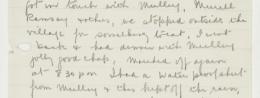 got in touch with Mulley, Munell
Ramsay & thos, we stopped outside the
village for something to eat. I went
back & had dinner with Mulley
jolly good chap, Moved off again
at 8.30 pm I had a water proof shirt
from Mulley & this kept off the rain,